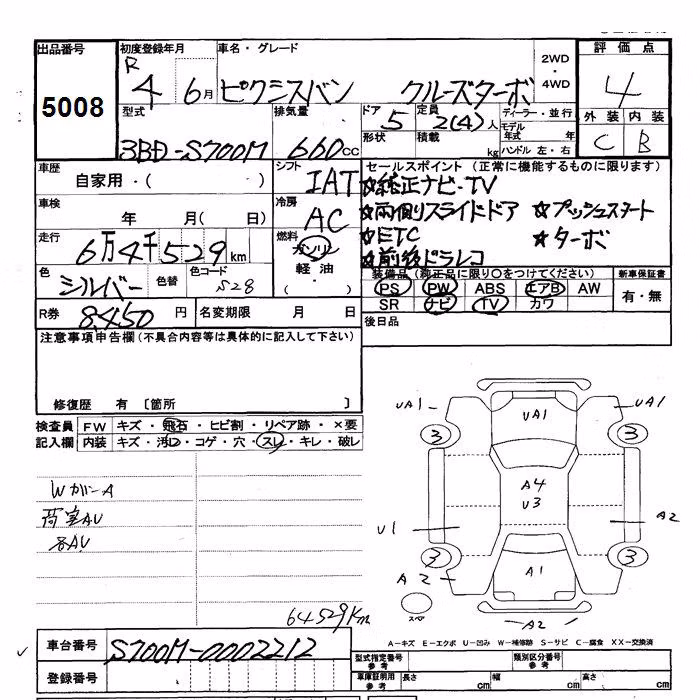 出品番号 初度登録年月 車名・グレード 2WD・4WD 評価点
5008 R4 6月 ピクシスバン クルーズターボ 4
型式 排気量 ドア 定員 ディーラー・並行 外装 内装
3BD-S700M 660cc 5 2(4)人 C B
形状 積載 kg モデル年式 年
ハンドル 左・右
車歴 自家用・( ) シフト IAT セールスポイント (正常に機能するものに限ります)
☆純正ナビ・TV
車検 年 月( 日) 冷房 AC ☆両側スライドドア ☆プッシュスタート
走行 6万4千529km 燃料 ガソリン ☆ETC ☆ターボ
軽油 ・( ) ☆前後ドラレコ
色 シルバー 色替 色コード S28 装備品 (純正品に限り○をつけてください) 新車保証書
PS PW ABS エアB AW 有・無
R券 8,450円 名変期限 月 日 SR ナビ TV カワ
注意事項申告欄(不具合内容等は具体的に記入して下さい) 後日品
修復歴 有 〔箇所 〕
検査員 FW キズ・飛石・ヒビ割・リペア跡・×要
記入欄 内装 キズ・汚レ・コゲ・穴・スレ・キレ・破レ
WカバーA
荷室AU
各AU
UA1 UA1 UA1
3 3
A4
U3
U1 A2
3 3
A2 A1
スペア A2
64529Km
A-キズ E-エクボ U-凹み W-補修跡 S-サビ C-腐食 XX-交換済
車台番号 S700M-0002212
型式指定番号 参考 類別区分番号 参考
登録番号 車庫証明用 参考 長さ cm 幅 cm 高さ cm